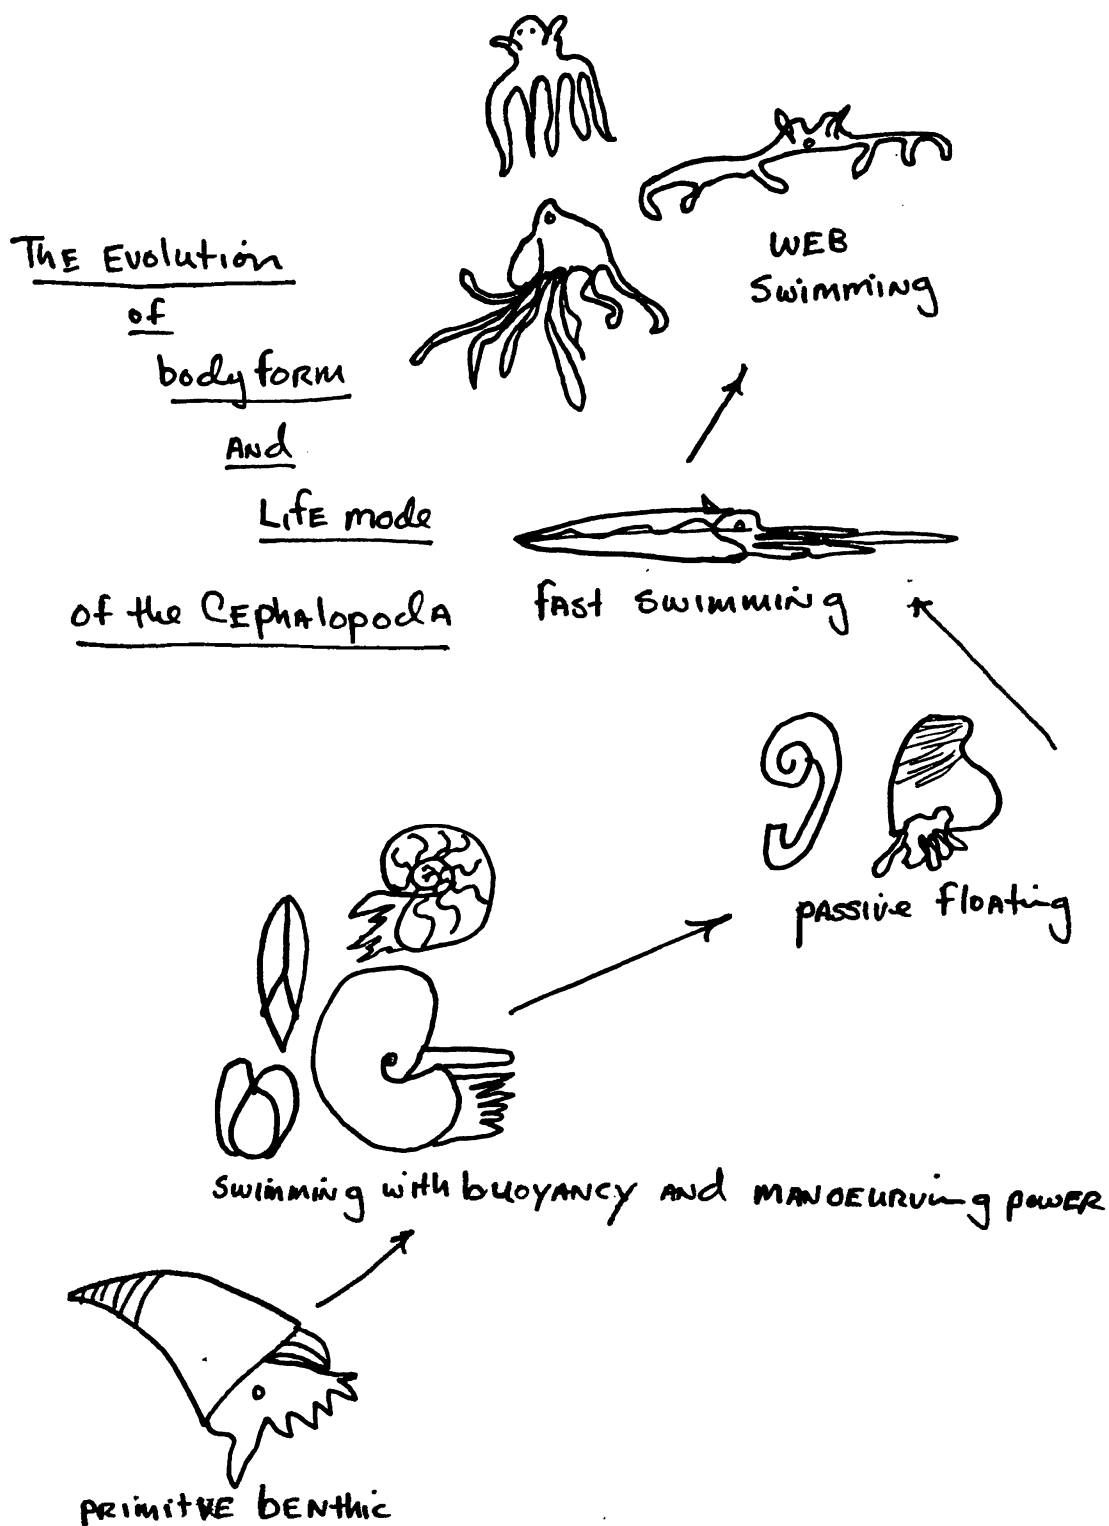 The Evolution
of
body form
And
Life mode
of the Cephalopoda
WEB
Swimming
fast swimming
passive floating
swimming with buoyancy and manoeurving power
primitve benthic